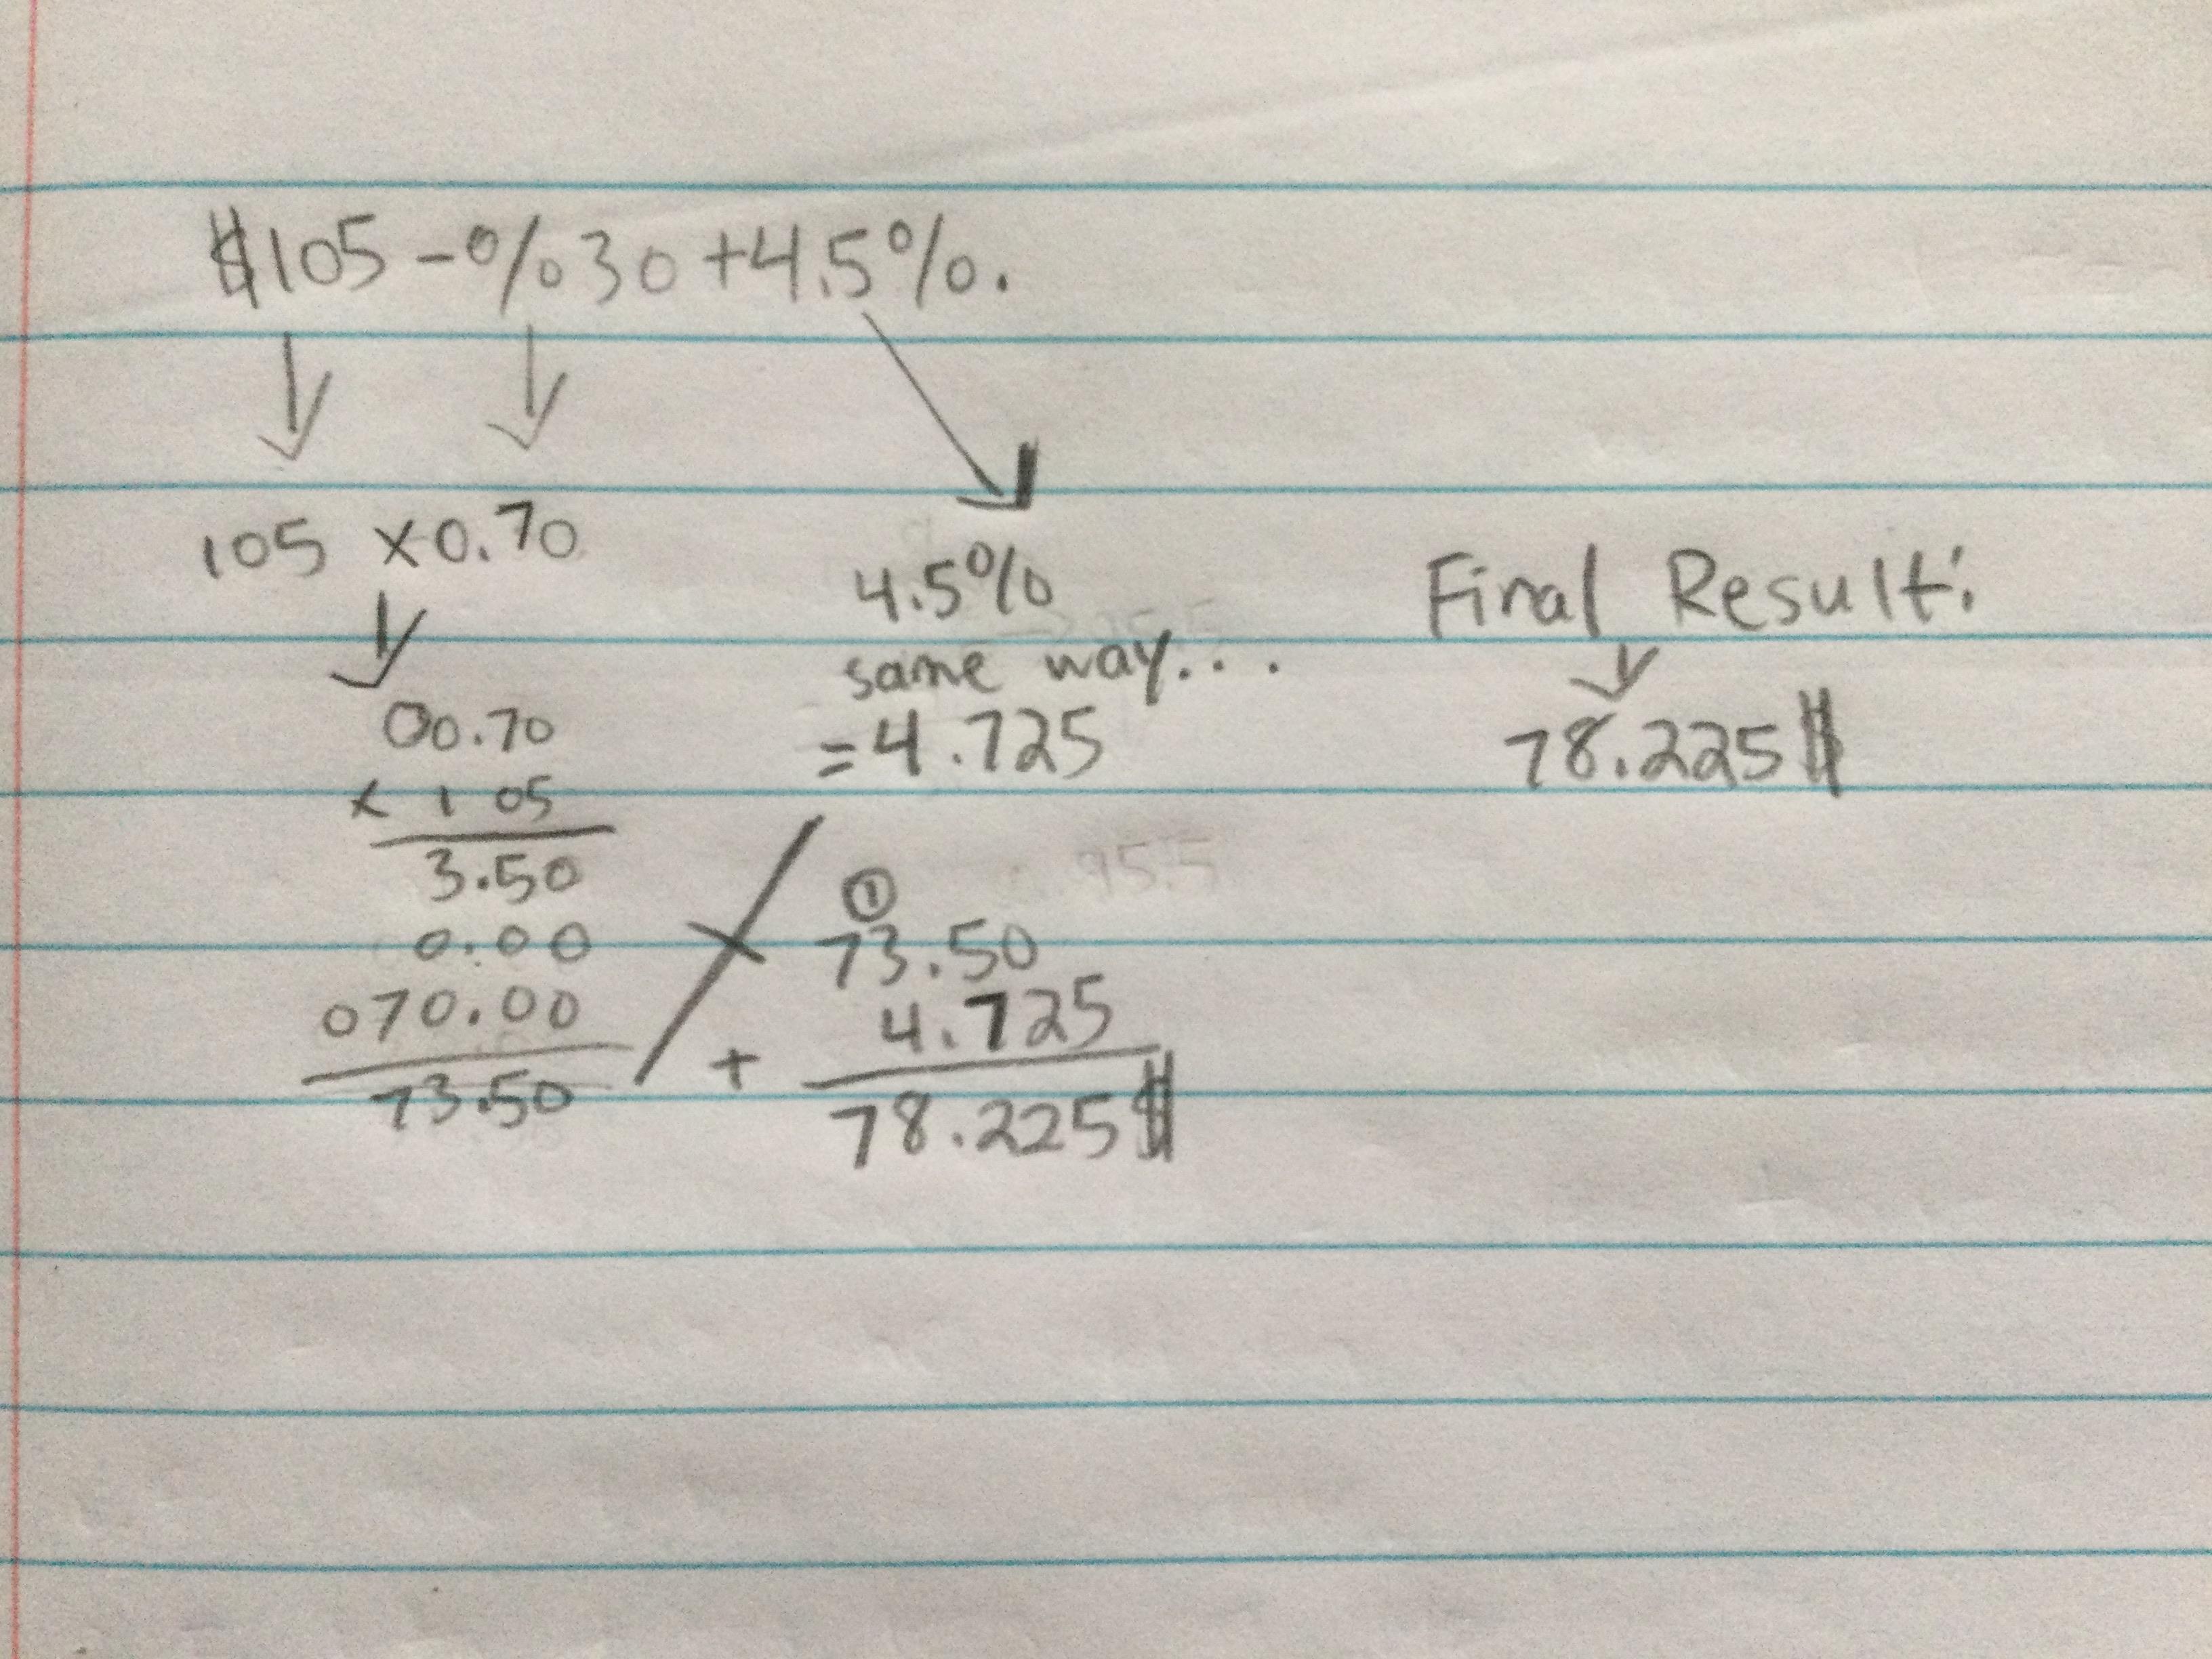 $105-%30+4.5%.
105 x0.70
00.70
x 105
3.50
0.00
070.00
73.50
4.5%
same way...
=4.725
①
73.50
4.725
+
78.225$
Final Result:
78.225$